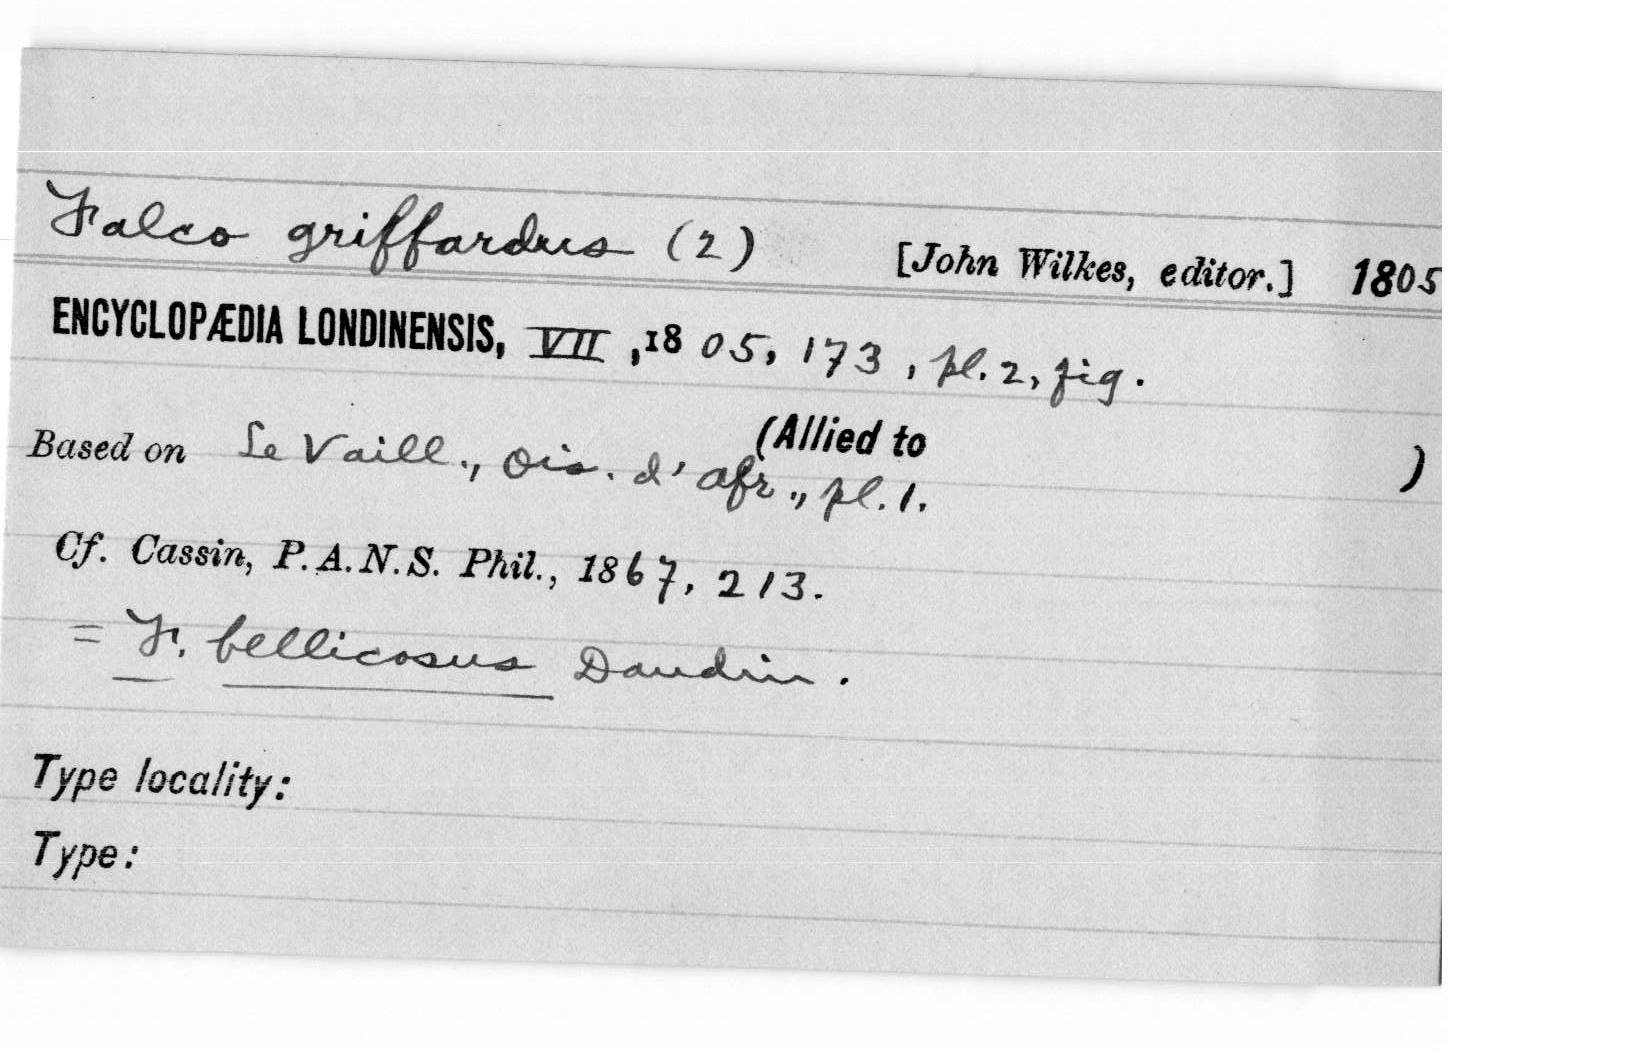 Falco griffardus (2) [John Wilkes, editor.] 1805
ENCYCLOPÆDIA LONDINENSIS, VII, 1805, 173, pl. 2, fig.
(Allied to )
Based on Le Vaill., Ois. d'Afr., pl. 1.
Cf. Cassin, P.A.N.S. Phil., 1867, 213.
= F. bellicosus Daudin.
Type locality:
Type: